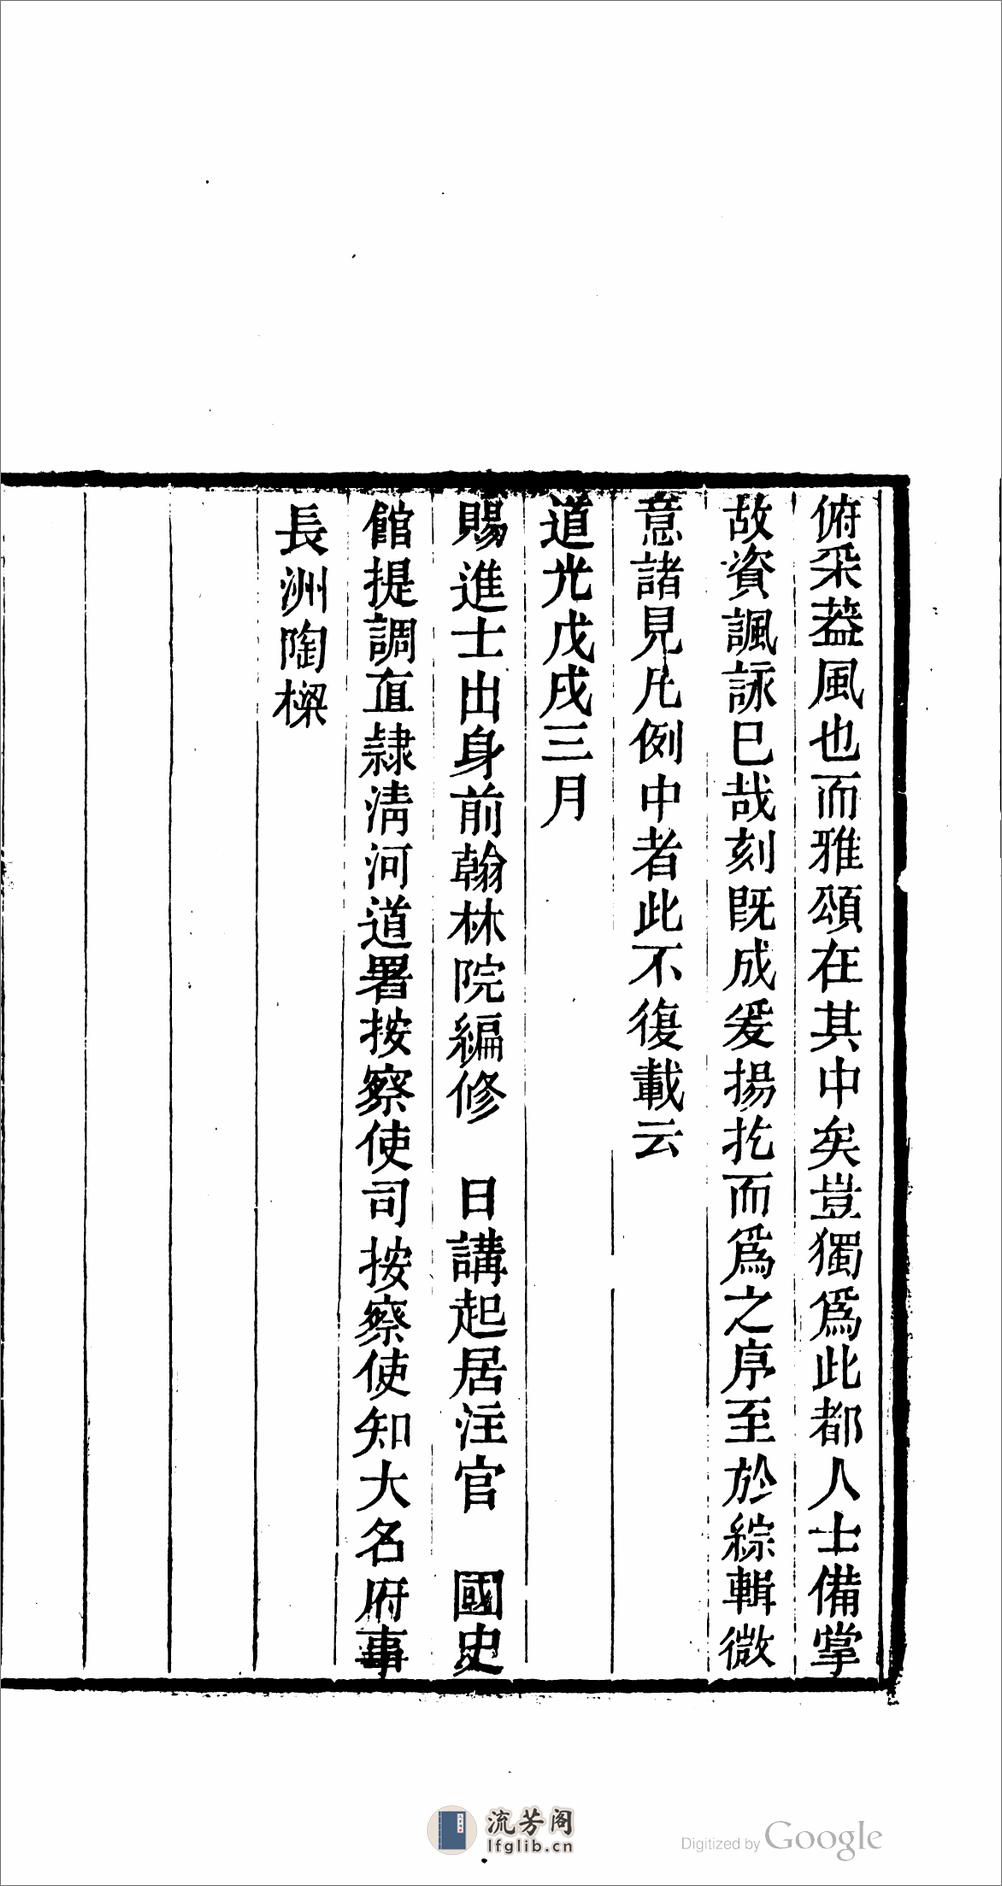 俯采葢風也而雅頌在其中矣豈獨爲此都人士備掌
故資諷詠已哉刻既成爰揚扢而爲之序至於綜輯微
意諸見凡例中者此不復載云
道光戊戌三月
賜進士出身前翰林院編修　日講起居注官　國史
館提調直隸淸河道署按察使司按察使知大名府事
長洲陶樑
流芳阁
lfglib.cn
Digitized by Google